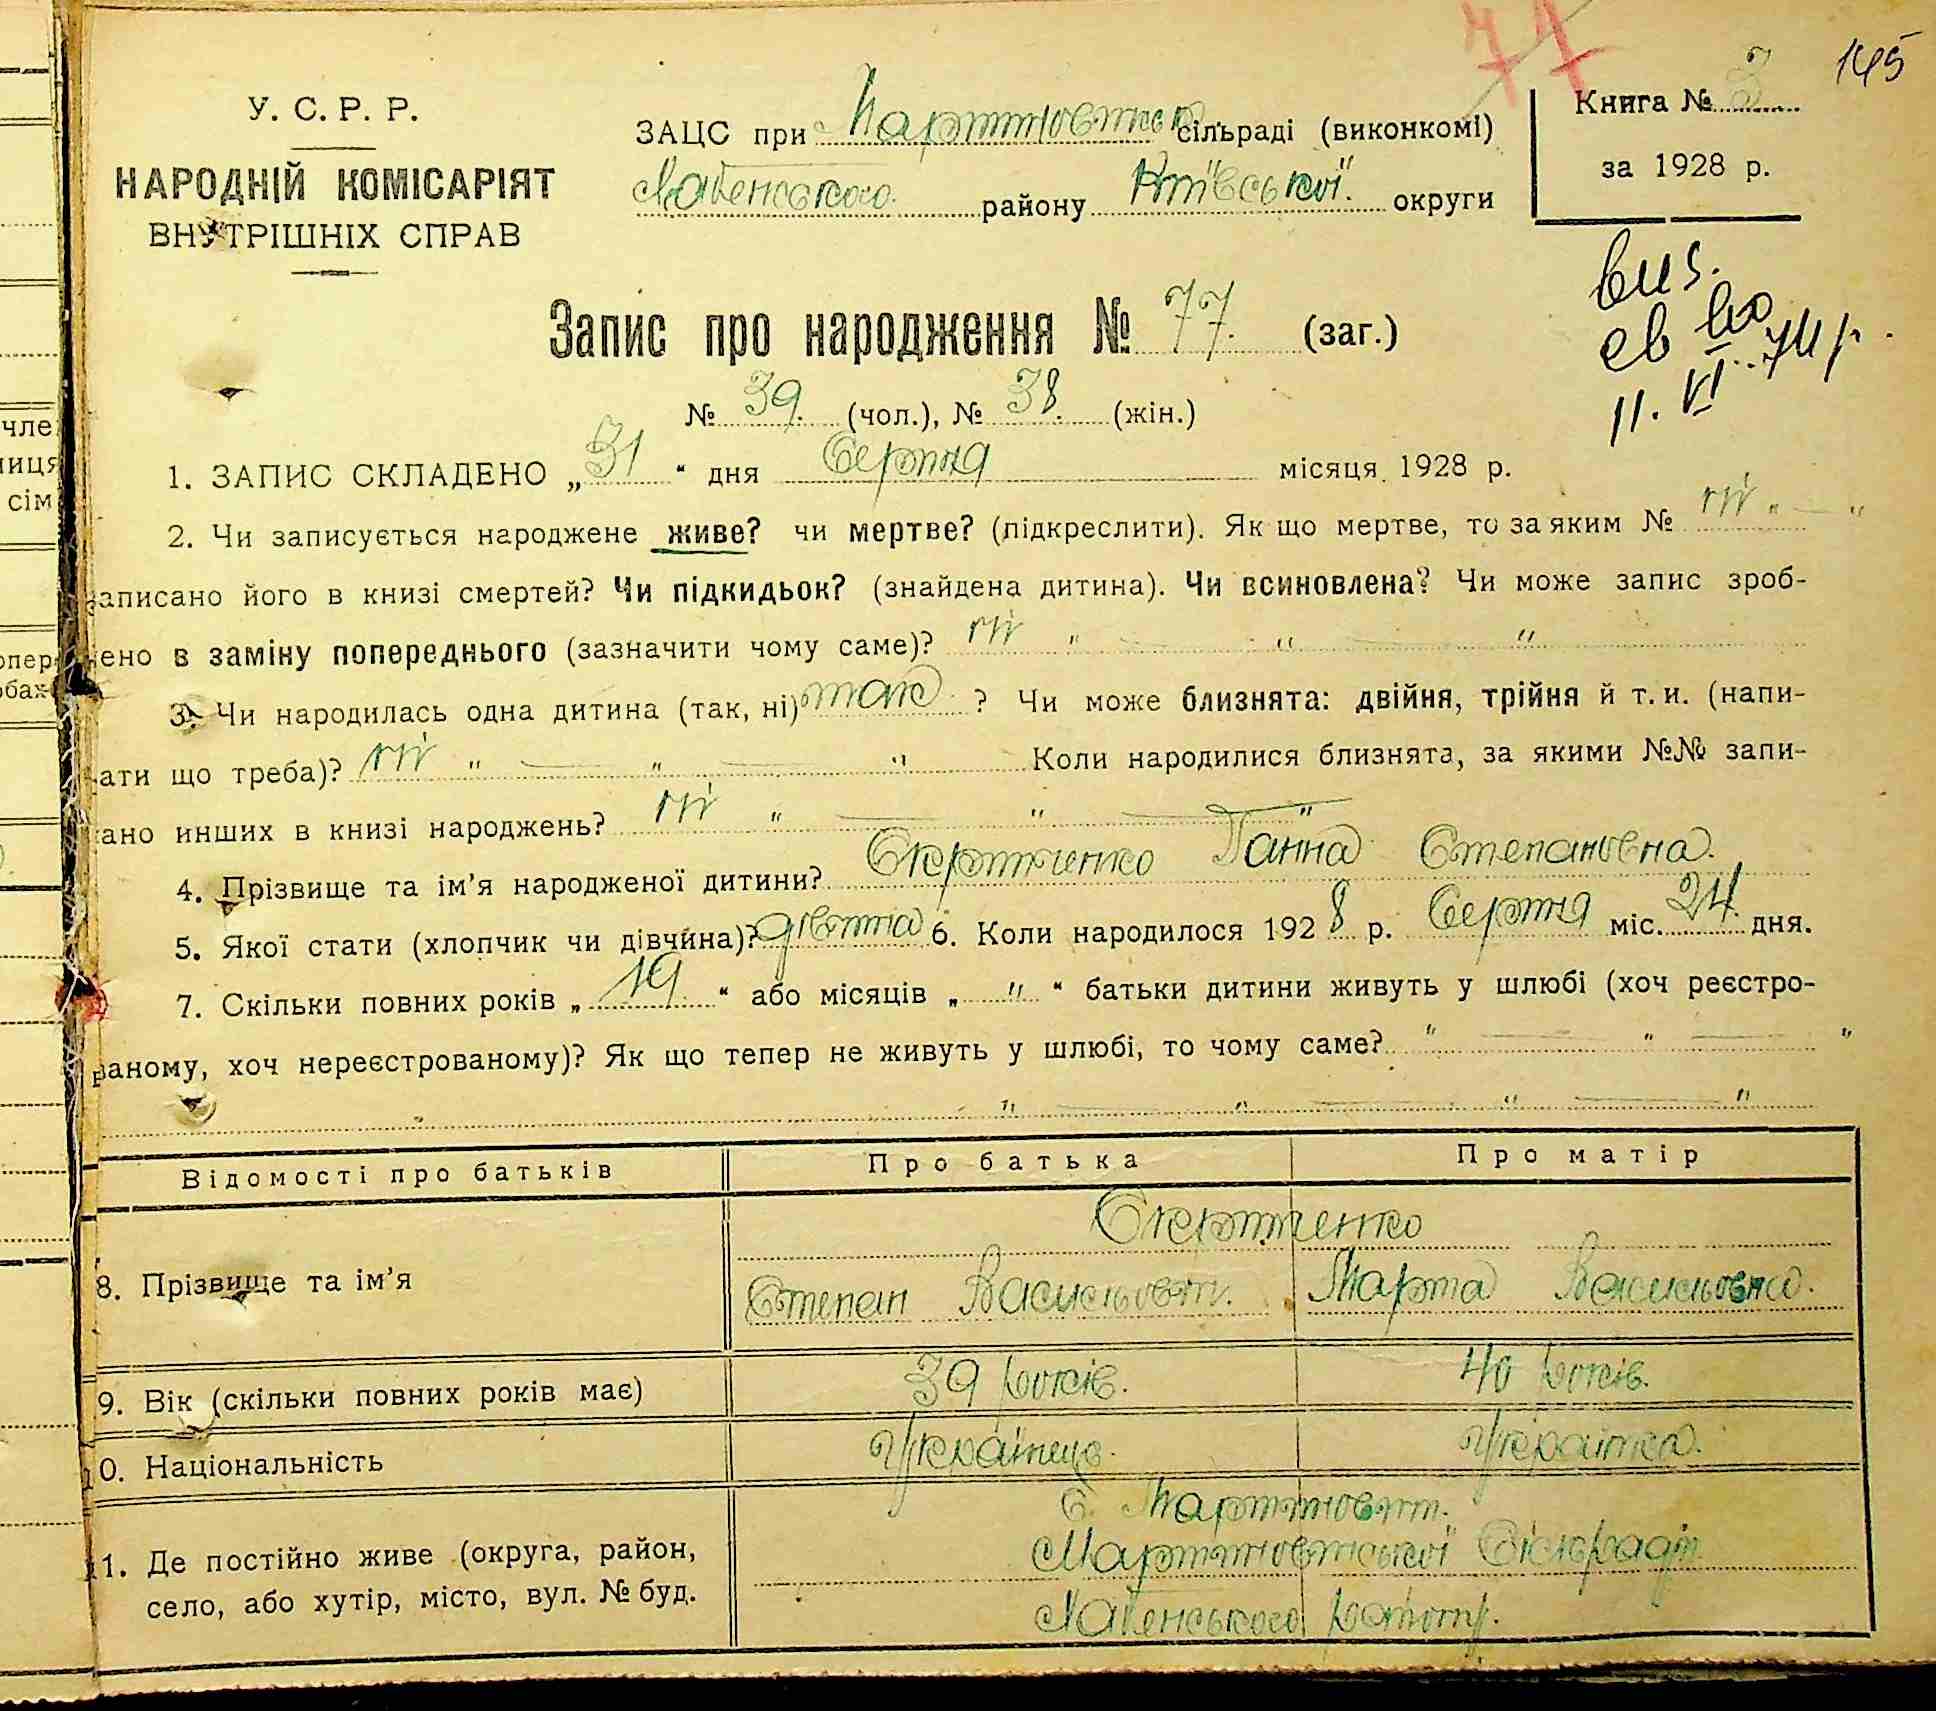 145
77
У. С. Р. Р.
НАРОДНІЙ КОМІСАРІЯТ
ВНУТРІШНІХ СПРАВ
ЗАЦС при сільраді (виконкомі)
району Київської округи
Книга № 2
за 1928 р.
Запис про народження № 77. (заг.)
вид.
св во
11. VI. 74 р.
№ 39. (чол.), № 38. (жін.)
1. ЗАПИС СКЛАДЕНО „ 31 “ дня Серпня місяця 1928 р.
2. Чи записується народжене живе? чи мертве? (підкреслити). Як що мертве, то за яким № ні " — "
записано його в книзі смертей? Чи підкидьок? (знайдена дитина). Чи всиновлена? Чи може запис зроб-
лено в заміну попереднього (зазначити чому саме)? ні " — " — "
3. Чи народилась одна дитина (так, ні) так ? Чи може близнята: двійня, трійня й т. и. (напи-
сати що треба)? ні " — " — " Коли народилися близнята, за якими №№ запи-
сано инших в книзі народжень? ні " — " — "
4. Прізвище та ім’я народженої дитини? Скрипченко Ганна Степановна.
5. Якої стати (хлопчик чи дівчина)? 6. Коли народилося 1928 р. Серпня міс. 24 дня.
7. Скільки повних років „ 19 “ або місяців „ " “ батьки дитини живуть у шлюбі (хоч реєстро-
ваному, хоч нереєстрованому)? Як що тепер не живуть у шлюбі, то чому саме? " — " — "
" " — " — " — "
Відомості про батьків Про батька Про матір
Скрипченко
8. Прізвище та ім’я Степан Васильович. Марта Васильовна.
9. Вік (скільки повних років має) 39 років. 40 років.
10. Національність Українець. Українка.
с. Мартиновичі.
11. Де постійно живе (округа, район, Мартиновицької Сільради
село, або хутір, місто, вул. № буд.
чле
ниця
сім
опер
обах